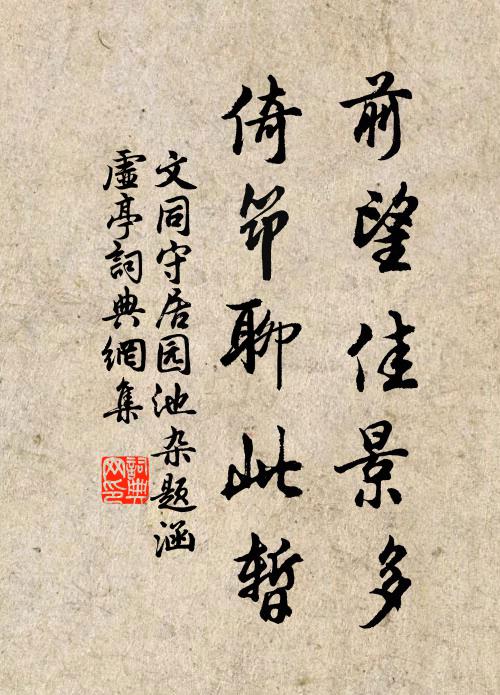 前望佳景多
倚筇聊此暫
文同守居园池杂题涵
虛亭詞典網集
詞典網印